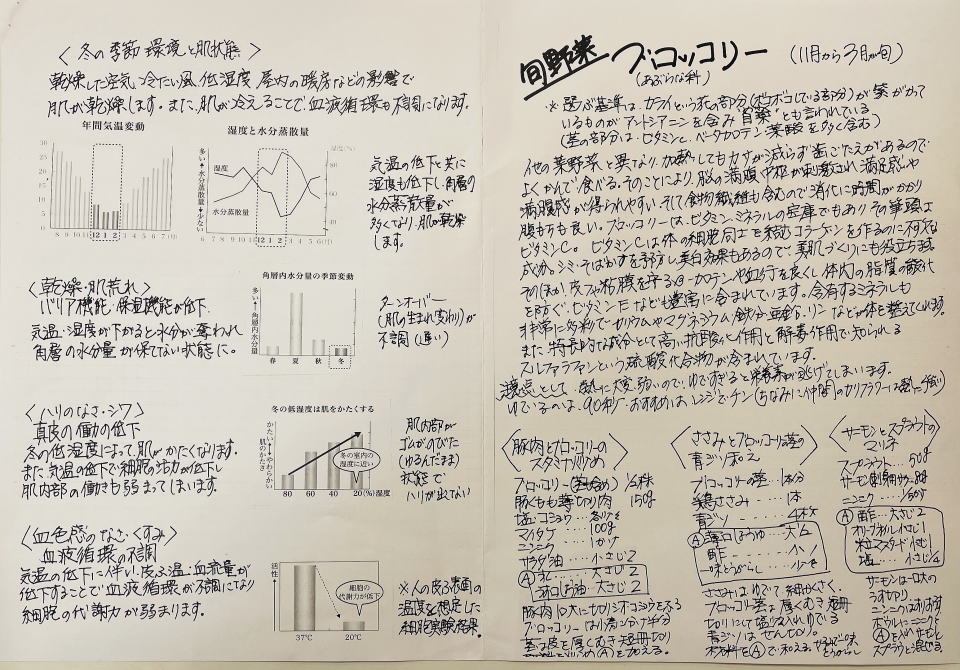 〈冬の季節環境と肌状態〉
乾燥した空気、冷たい風、低湿度、屋内の暖房などの影響で
肌が乾燥します。また、肌が冷えることで、血液循環も不調になります。
年間気温変動
30
25
20
15
10
5
0
8 9 10 11 12 1 2 3 4 5 6 7(月)
湿度と水分蒸散量
湿度(%)
多い↑水分蒸散量↓少ない
湿度
水分蒸散量
80
60
40
6 7 8 9 10 11 12 1 2 3 4 5 6(月)
気温の低下と共に
湿度も低下し、角層の
水分蒸散量が
多くなり、肌が乾燥
します。
〈乾燥・肌荒れ〉
バリア機能・保湿機能が低下
気温・湿度が下がると水分が奪われ
角層の水分量が保てない状態に。
角層内水分量の季節変動
多い↑角層内水分量
春 夏 秋 冬
ターンオーバー
(肌の生まれ変わり)が
不調(遅い)
〈ハリのなさ・シワ〉
真皮の働の低下
冬の低湿度によって、肌がかたくなります。
また、気温の低下で細胞の活力が低下し
肌内部の働きも弱まってしまいます。
冬の低湿度は肌をかたくする
かたい↑肌のかたさ↓やわらかい
冬の室内の
湿度に近い
80 60 40 20(%)湿度
肌内部が
ゴムがのびた
(ゆるんだまま)
状態で
ハリが出てない
〈血色感のなさ・くすみ〉
血液循環の不調
気温の低下に伴い、皮ふ温・血流量が
低下することで血液循環が不調になり
細胞の代謝力が弱まります。
活性↑
細胞の
代謝力が低下
37℃ 20℃
※人の皮ふ表面の
温度を想定した
細胞実験結果。
旬野菜 ブロッコリー (11月から3月が旬)
(あぶらな科)
※選ぶ基準は、カライという花の部分(ボコボコしている部分)が紫がかって
いるものがアントシアニンを含み"冒葉"とも言われている
(茎の部分は、ビタミンC、ベータカロテン、葉酸を多く含む)
他の葉野菜と異なり、加熱してもカサが減らず歯ごたえがあるので
よくかんで食べる。そのことにより、脳の満腹中枢が刺激され満足感や
満腹感が得られやすい。そして食物繊維も含むので消化に時間がかかり
腹もちも良い。ブロッコリーは、ビタミン・ミネラルの宝庫でもありその筆頭は
ビタミンC。ビタミンCは体の細胞同士を結ぶコラーゲンを作るのに不可欠な
成分。シミ・そばかすを予防し美白効果もあるので、美肌づくりにも役立ちます
そのほか、皮フや粘膜を守るβ-カロテンや血行を良くし体内の脂質の酸化
を防ぐ、ビタミンEなども豊富に含まれています。含有するミネラルも
非常に多彩で、カリウムやマグネシウム、鉄分、亜鉛、リンなどが体を整えてくれます。
また特長的な成分として高い抗酸化作用と解毒作用で知られる
スルフォラファンという硫酸化合物が含まれています。
注意点として、熱に大変弱いので、ゆですぎると栄養素が逃げてしまいます。
ゆでいるのは、90秒・おすすめは、レンジでチン(ちなみに仲間のカリフラワーは熱に強い)
〈豚肉とブロッコリーの
スタミナバリ炒め〉
ブロッコリー(茎も含め) 1/2株
豚もも薄切り肉 150g
塩・コショウ…各少々
マイタケ…100g
ニンニク…1かけ
サラダ油…小さじ2
Ⓐ水…大さじ2
しょうゆ…大さじ2
豚肉一口大に切りシオコショウをふる
ブロッコリーは小房に分け半分
茎は皮を厚くむき短冊切り
Ⓐを加える。
〈ささみとブロッコリーの茎の
青ジソ和え〉
ブロッコリーの茎…1本分
鶏ささみ…1本
青ジソ…4枚
Ⓐ薄口しょうゆ…大1/2
酢…小1
一味とうがらし…少々
ささみは、ゆでて細かくさく
ブロッコリー茎は厚くむき短冊
切りにして塩を入れゆでる
青ジソはせん切り。
材料をⒶで和える。
〈サーモンとスプラウトの
マリネ〉
スプラウト…50g
サーモン刺身用サク…80g
ニンニク…1/2かけ
Ⓐ酢…大さじ2
オリーブオイル小さじ1
粒マスタード小さじ1
塩…小さじ1/4
サーモンは一口大の
うすぎり
ニンニクはすりおろす
ボウルにニンニクと
Ⓐを入れサーモンと
スプラウトを混ぜる。